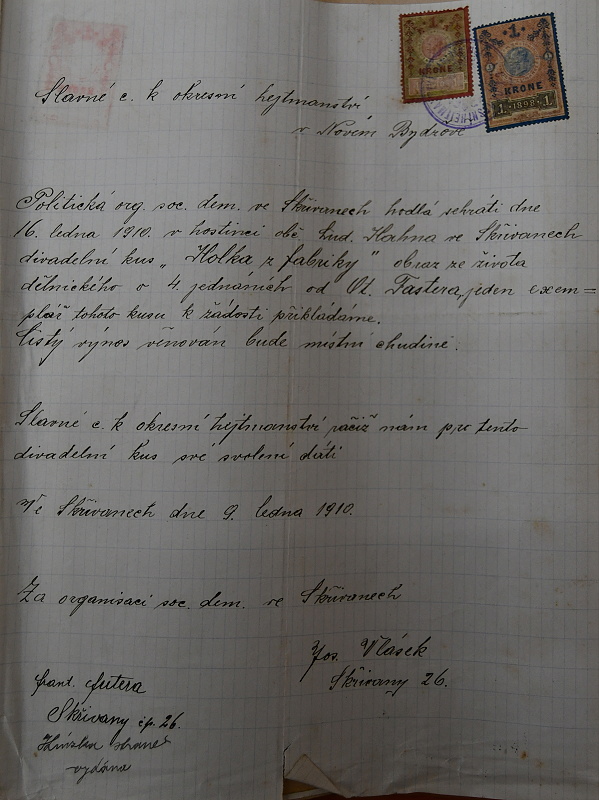 1
KRONE
1
KRONE
1 · 1898 · 1
Slavné c. k okresní hejtmanství
v Novém Bydžově
Politická org. soc. dem. ve Skřivanech hodlá sehráti dne
16. ledna 1910. v hostinci obč. Lud. Hahna ve Skřivanech
divadelní kus „Holka z fabriky" obraz ze života
dělnického o 4 jednáních od Vl. Tastera, jeden exem=
plář tohoto kusu k žádosti přikládáme.
Čistý výnos věnován bude místní chudině.
Slavné c. k okresní hejtmanství račiž nám pro tento
divadelní kus své svolení dáti
Ve Skřivanech dne 9. ledna 1910.
Za organisaci soc. dem. ve Skřivanech
Jos. Vlásek
Skřivany 26.
frant. Kutera
Skřivany čp. 26.
vydána